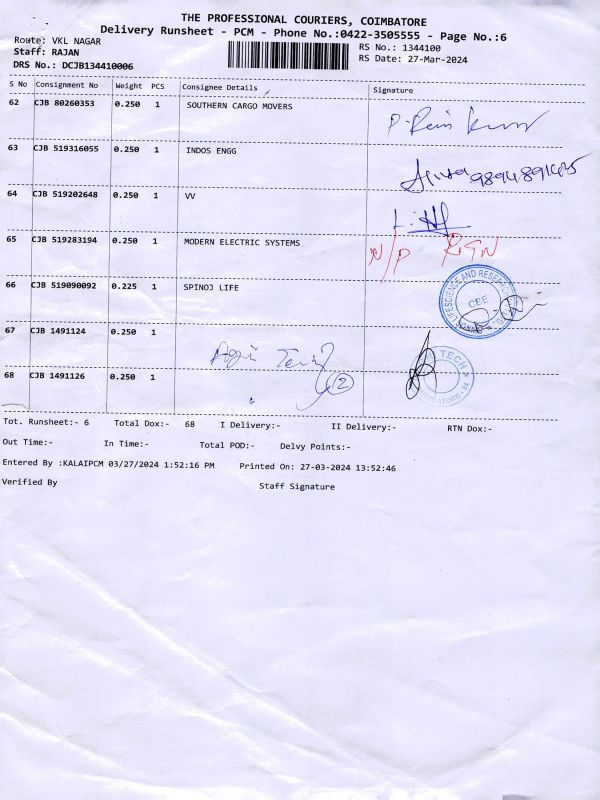 THE PROFESSIONAL COURIERS, COIMBATORE
Delivery Runsheet - PCM - Phone No.:0422-3505555 - Page No.:6
Route: VKL NAGAR
Staff: RAJAN
RS No.: 1344100
DRS No.: DCJB134410006
RS Date: 27-Mar-2024
S No Consignment No Weight PCS Consignee Details Signature
62 CJB 80260353 0.250 1 SOUTHERN CARGO MOVERS
63 CJB 519316055 0.250 1 INDOS ENGG
64 CJB 519202648 0.250 1 VV
65 CJB 519283194 0.250 1 MODERN ELECTRIC SYSTEMS N/P RTN
66 CJB 519090092 0.225 1 SPINOJ LIFE
CEE
67 CJB 1491124 0.250 1
TECH
68 CJB 1491126 0.250 1 2
Tot. Runsheet:- 6 Total Dox:- 68 I Delivery:- II Delivery:- RTN Dox:-
Out Time:- In Time:- Total POD:- Delvy Points:-
Entered By :KALAIPCM 03/27/2024 1:52:16 PM Printed On: 27-03-2024 13:52:46
Verified By Staff Signature